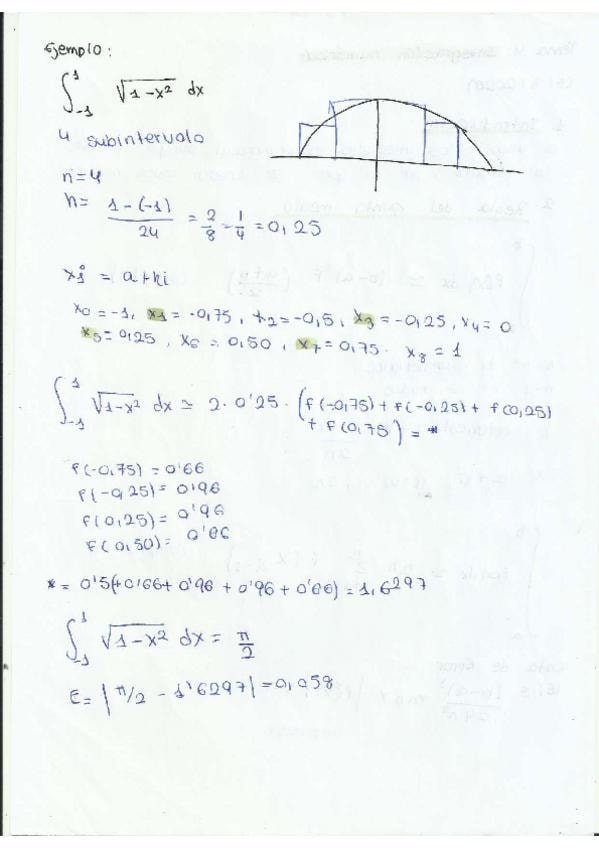 Ejemplo:
∫₋₁¹ √(1-x²) dx
4 subintervalo
n=4
h= (1-(-1))/24 = 2/8 = 1/4 = 0,25
xi = a+hi
x0 = -1, x1 = -0,75, x2 = -0,5, x3 = -0,25, x4 = 0
x5 = 0,25, x6 = 0,50, x7 = 0,75. x8 = 1
∫₋₁¹ √(1-x²) dx ≃ 2·0'25·(f(-0,75) + f(-0,25) + f(0,25)
+ f(0,75)) = *
f(-0,75) = 0'66
f(-0,25) = 0'96
f(0,25) = 0'96
f(0,50) = 0'66
* = 0'5(+0'66+ 0'96 + 0'96 + 0'66) = 1,6297
∫₋₁¹ √(1-x²) dx = π/2
E = |π/2 - 1'6297| = 0,058